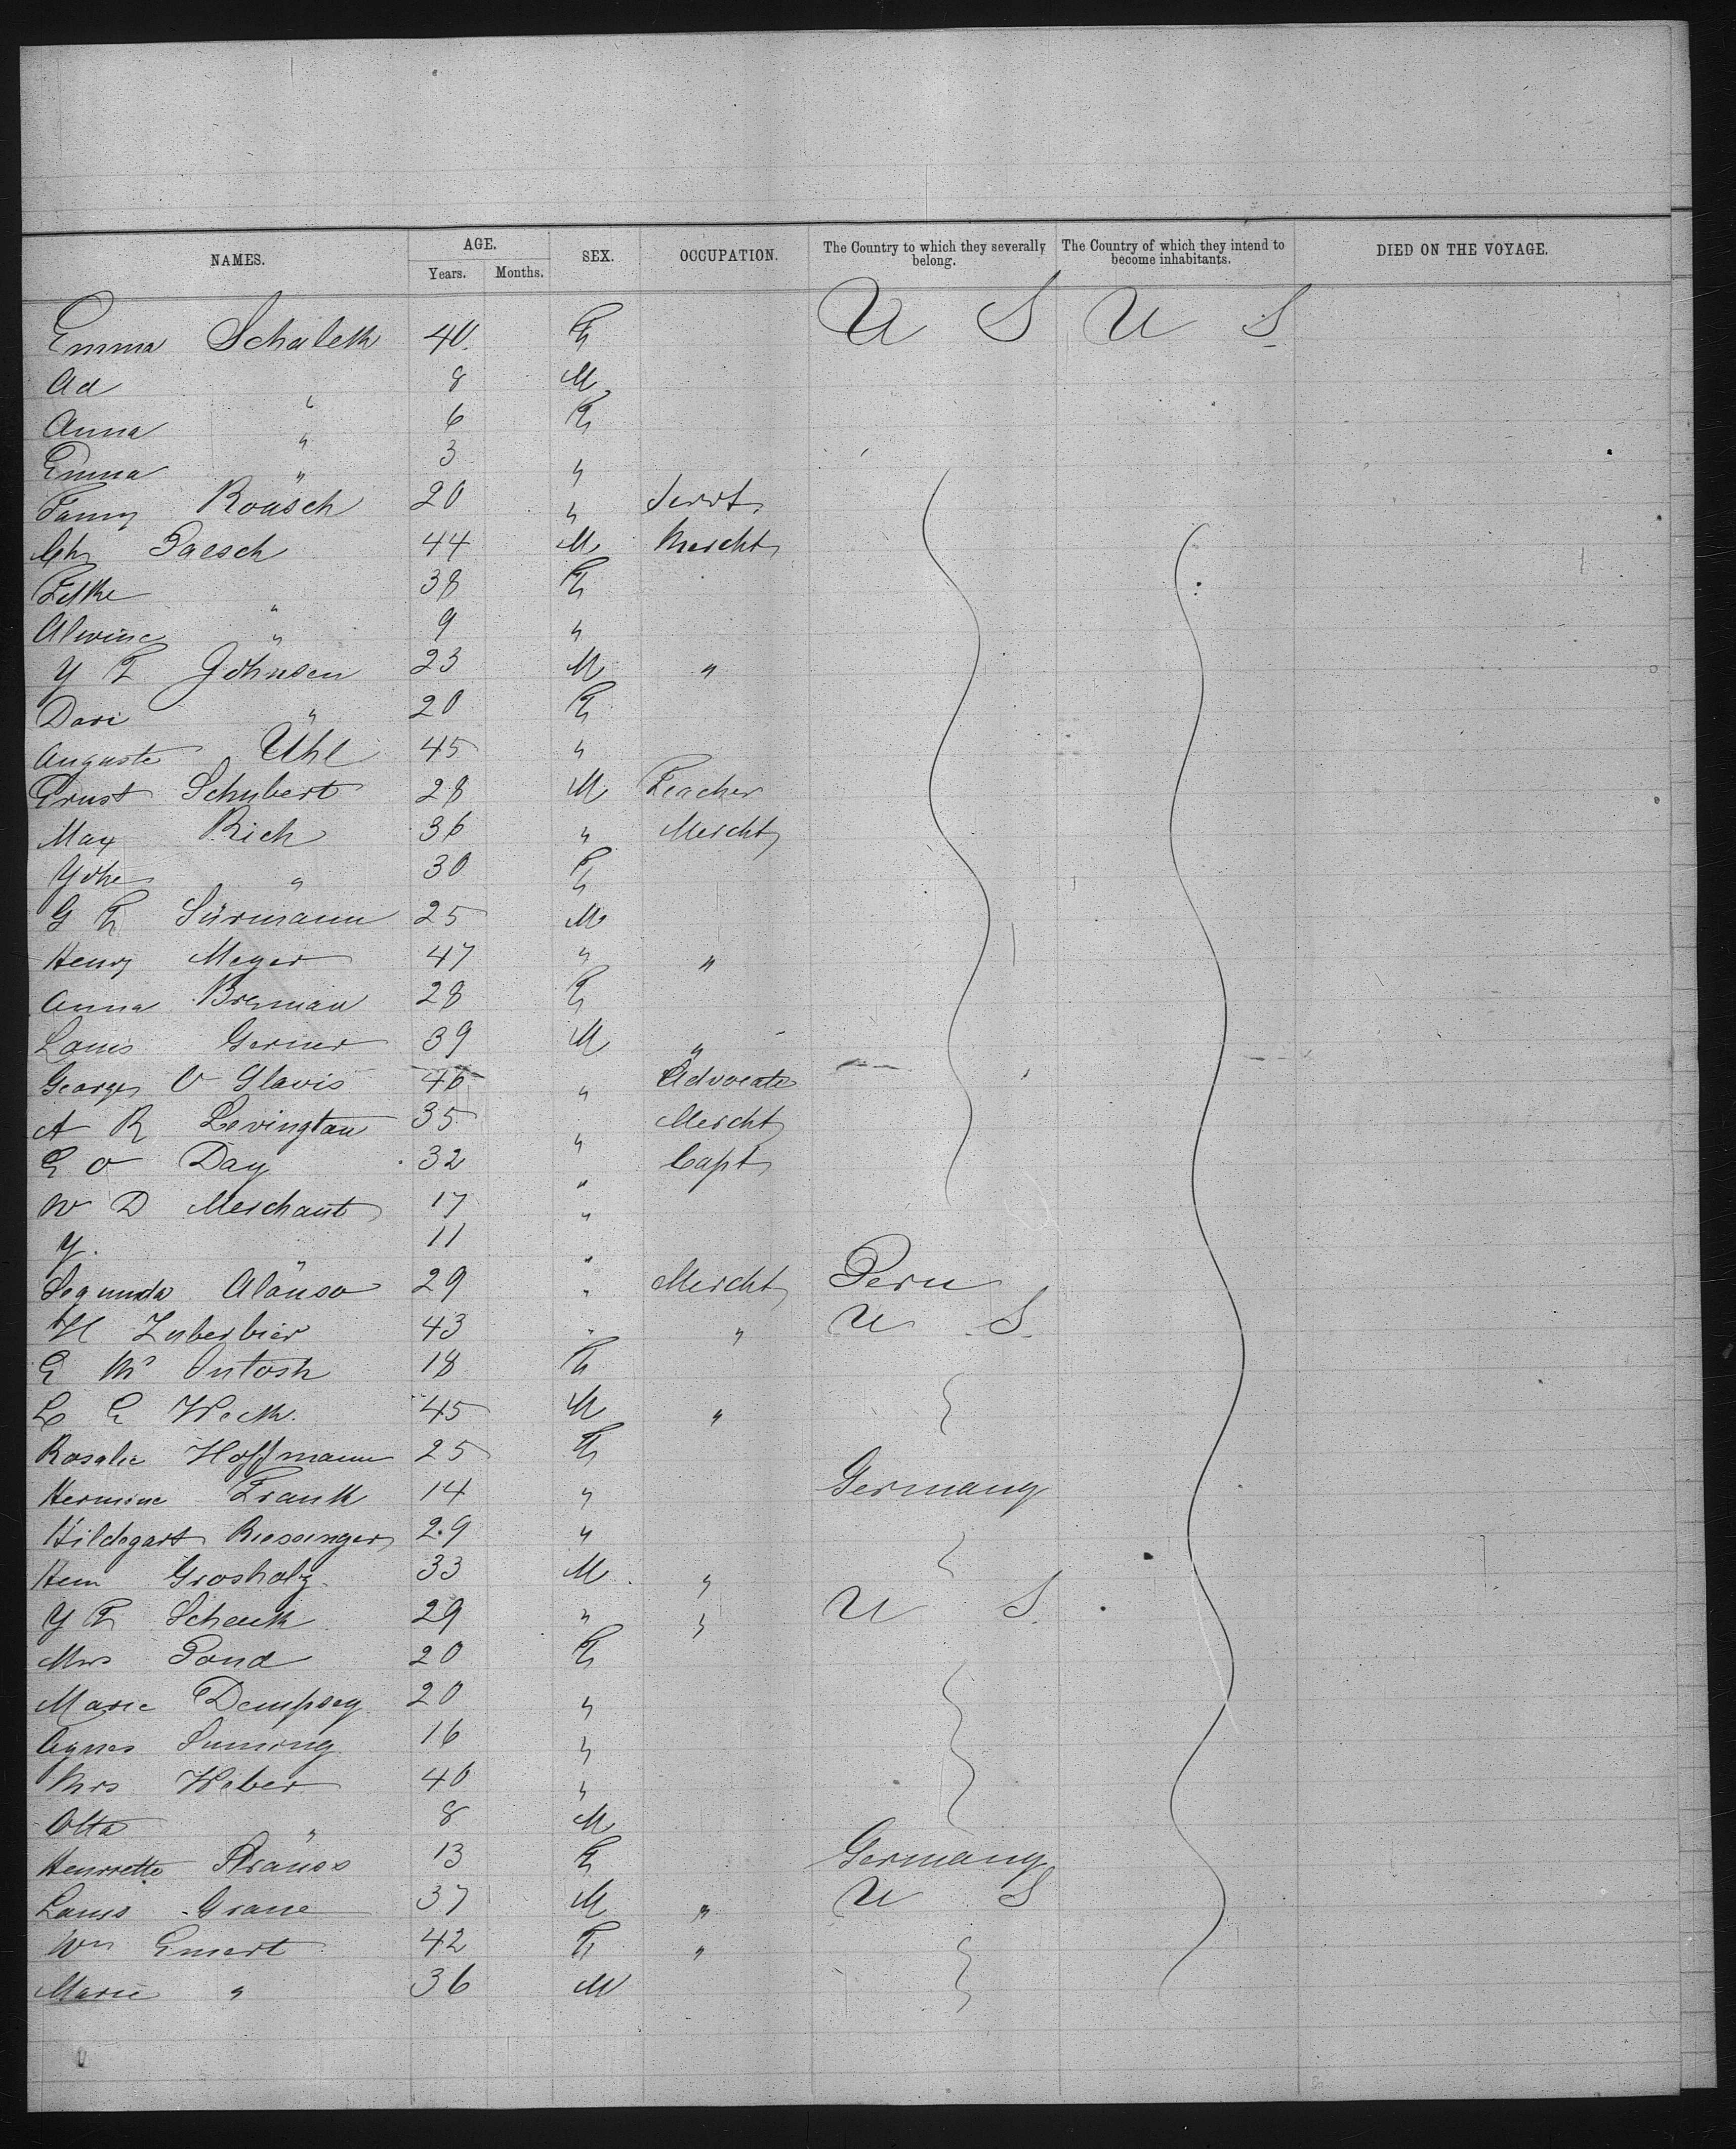 NAMES. AGE. Years. Months. SEX. OCCUPATION. The Country to which they severally belong. The Country of which they intend to become inhabitants. DIED ON THE VOYAGE.
Emma Schalek 40 F U S U S
Ad " 8 M
Anna " 6 F
Emma " 3 "
Fanny Roasch 20 " Servt
Chr Paesch 44 M Mercht
" 38 F
Alwine " 9 "
Y F Johnsen 23 M "
Dari " 20 F
Auguste Uhl 45 "
Ernst Schubert 28 M Teacher
Max Rich 36 " Mercht
" 30 F
G F Sürmann 25 M
Henry Meyer 47 " "
Anna Breman 28 F
Louis Gerner 39 M "
George O Glavis 46 " Advocate
A R Levington 35 " Mercht
E O Day 32 " Capt
W D Merchant 17 "
Y. " 11 "
Segunda Alonso 29 " Mercht Peru
H Zuberbier 43 " " U S
E Mc Intosh 18 F
L E Weck 45 M "
Rosalie Hoffmann 25 F
Hermine Frank 14 " Germany
Hildegart 29 "
Hem Grosholz 33 M "
Y F Schenk 29 " " U S
Mrs Pond 20 F
Marie Dempsey 20 "
Agnes 16 "
Mrs Weber 40 "
Otto " 8 M
Henriette Strauss 13 F Germany
Louis Grane 37 M " U S
Wm Emert 42 F "
Marie " 36 M